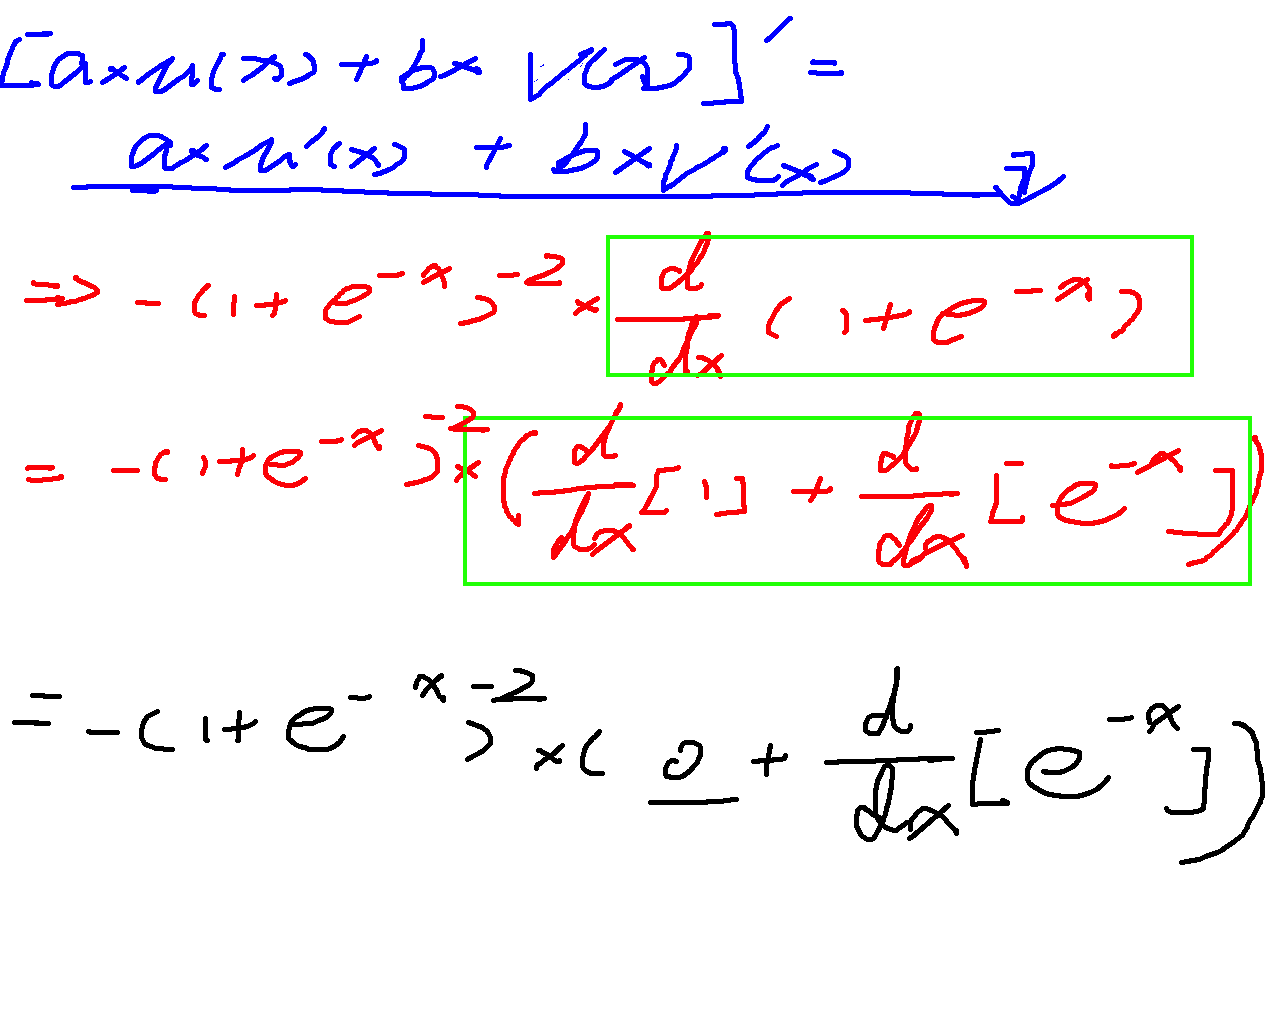 [a×u(x)+b×v(x)]′=
a×u′(x)+b×v′(x)
⇒ -(1+e^{-x})^{-2}× d/dx (1+e^{-x})
= -(1+e^{-x})^{-2}× (d/dx [1] + d/dx [e^{-x}])
= -(1+e^{-x})^{-2}×(0 + d/dx [e^{-x}])